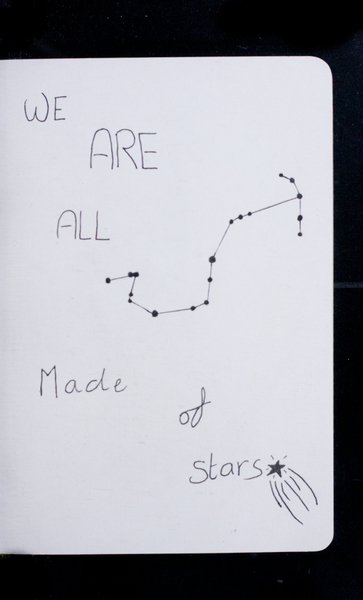 WE
ARE
ALL
Made
of
stars